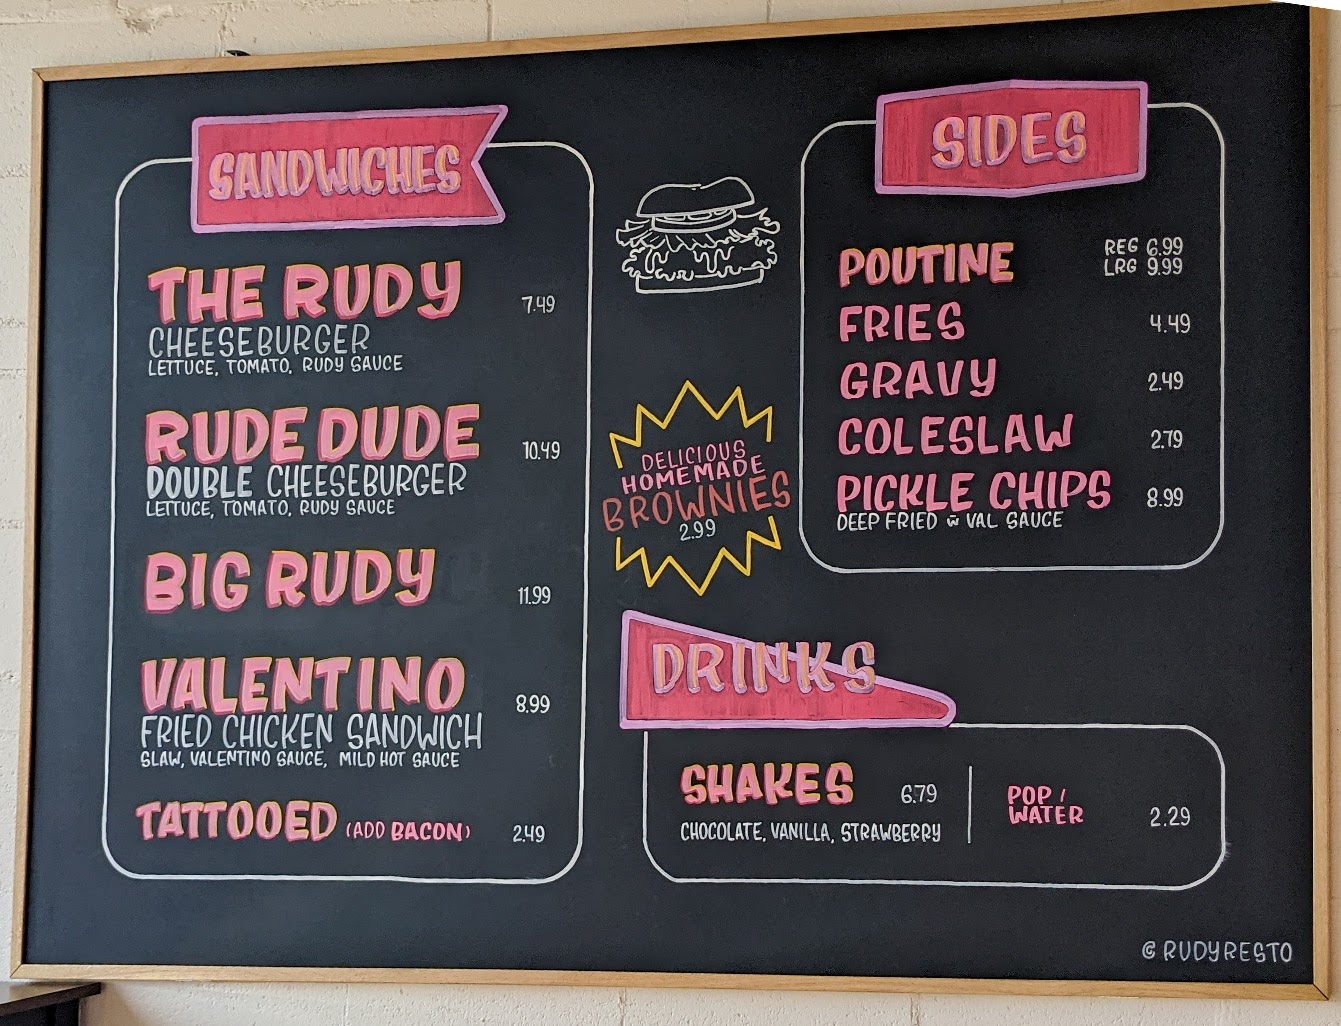 SANDWICHES
THE RUDY 7.49
CHEESEBURGER
LETTUCE, TOMATO, RUDY SAUCE
RUDE DUDE 10.49
DOUBLE CHEESEBURGER
LETTUCE, TOMATO, RUDY SAUCE
BIG RUDY 11.99
VALENTINO 8.99
FRIED CHICKEN SANDWICH
SLAW, VALENTINO SAUCE, MILD HOT SAUCE
TATTOOED (ADD BACON) 2.49
DELICIOUS
HOMEMADE
BROWNIES
2.99
SIDES
POUTINE REG 6.99
LRG 9.99
FRIES 4.49
GRAVY 2.49
COLESLAW 2.79
PICKLE CHIPS 8.99
DEEP FRIED w VAL SAUCE
DRINKS
SHAKES 6.79
CHOCOLATE, VANILLA, STRAWBERRY
POP /
WATER 2.29
@RUDYRESTO